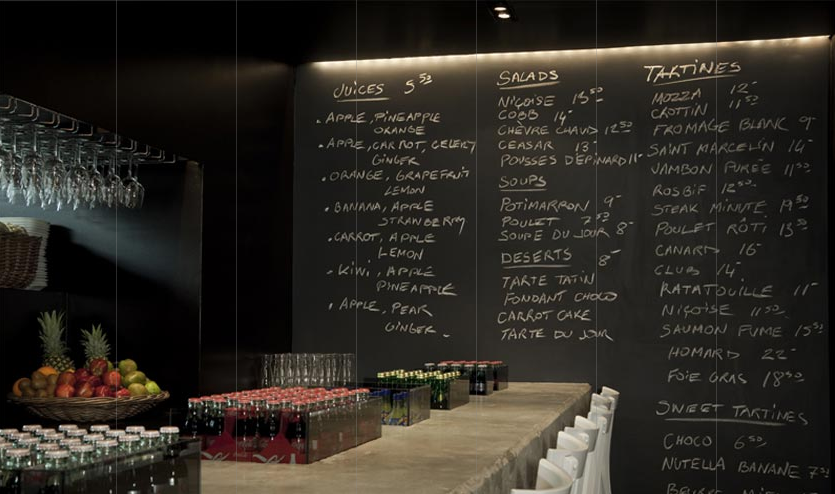 JUICES 5.50
. APPLE, PINEAPPLE
ORANGE
. APPLE, CARROT, CELERY
GINGER
. ORANGE, GRAPEFRUIT
LEMON
. BANANA, APPLE
STRAWBERRY
. CARROT, APPLE
LEMON
. KIWI, APPLE
PINEAPPLE
. APPLE, PEAR
GINGER
SALADS
NIÇOISE 13.50
COBB 14-
CHÈVRE CHAUD 12.50
CEASAR 13-
POUSSES D'ÉPINARD 11-
SOUPS
POTIMARRON 9-
POULET 7.50
SOUPE DU JOUR 8-
DESERTS 8-
TARTE TATIN
FONDANT CHOCO
CARROT CAKE
TARTE DU JOUR
TARTINES
MOZZA 12-
CROTTIN 11.50
FROMAGE BLANC 9-
SAINT MARCELIN 14-
JAMBON FUMÉE 11.50
ROSBIF 12.50
STEAK MINUTE 19.50
POULET RÔTI 13.50
CANARD 16-
CLUB 14-
RATATOUILLE 11-
NIÇOISE 11.50
SAUMON FUME 15.50
HOMARD 22-
FOIE GRAS 18.50
SWEET TARTINES
CHOCO 6.50
NUTELLA BANANE 7.50